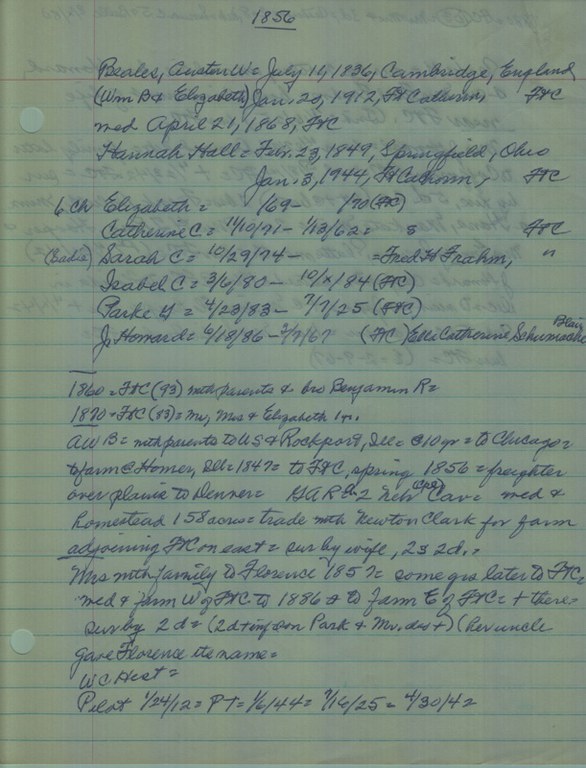 1856
Beales, Austin W = July 11, 1836, Cambridge, England
(Wm B & Elizabeth) Jan. 20, 1912, Ft Calhoun, FtC
med April 21, 1868, FtC
Hannah Hall = Feb. 23, 1849, Springfield, Ohio
Jan. 3, 1944, Ft Calhoun, FtC
6 ch Elizabeth = /69 - /70 (FtC)
Catherine C = 11/10/71 - 1/13/62 = s FtC
(Sadie) Sarah C = 10/29/74 - = Fred H Frahm, "
Isabel C = 3/6/80 - 10/x/84 (FtC)
Parke G = 4/23/83 - 7/7/25 (FtC)
J. Howard = 6/18/86 - 3/7/67 (FtC) Ella Catherine Schumacher Blair
1860 = FtC (93) with parents & bro Benjamin R =
1870 = FtC (83) = Mr, Mrs & Elizabeth 1 yr.
AWB = with parents to US & Rockport, Ill = @ 10 yr = to Chicago =
to farm @ Homer, Ill = 1847 = to FtC, spring 1856 = freighter
over plains to Denver = GAR 2 Nebr Cav = med &
homestead 158 acres = trade with Newton Clark for farm
adjoining FtC on east = sur by wife, 2s 2d. =
Mrs with family to Florence 1857 = some yrs later to FtC =
med & farm W of FtC to 1886 & to farm E of FtC = + there =
sur by 2 d = (2d + son Park & Mr. dec +) (her uncle
gave Florence its name =
WC Hist =
Pilot 1/24/12 = PT = 1/6/44 = 7/16/25 = 4/30/42